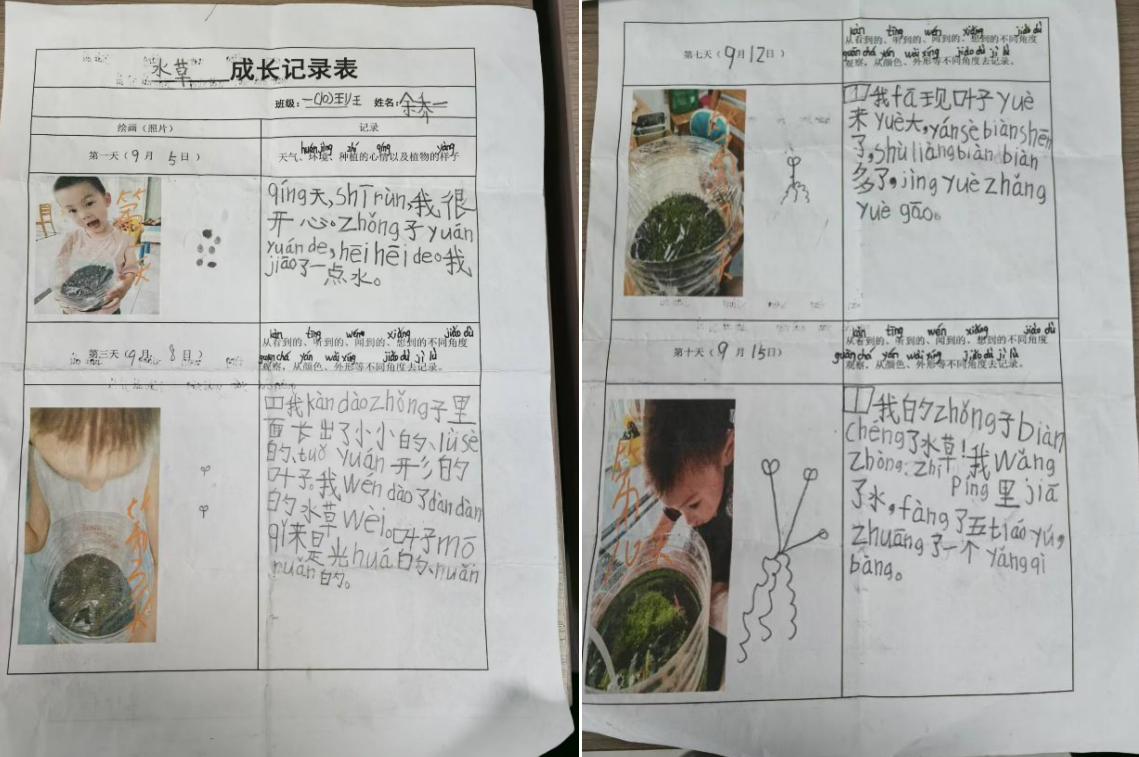 水草 成长记录表
班级：一(10)班 姓名：
绘画（照片） 记录
第一天（9月 5日）
huán jìng zhí qíng yàng
天气、环境、种植的心情以及植物的样子
第一天
qíng天,shī rùn,我很
开心。zhǒng子yuán
yuán de,hēi hēi de。我
jiāo了一点水。
第三天（9月 8日）
kàn tīng wén xiǎng jiǎo dù
从看到的、听到的、闻到的、想到的不同角度
guān chá yán wài xíng jiǎo dù jì lù
观察，从颜色、外形等不同角度去记录。
我kàn dào zhǒng子里
面长出了小小的、lǜ sè
的、tuǒ yuán形的
叶子。我wén dào了dàn dàn
的水草wèi。叶子mō
qǐ来是光huá的、nuǎn
nuǎn的。
第七天（9月12日）
kàn tīng wén xiǎng jiǎo dù
从看到的、听到的、闻到的、想到的不同角度
guān chá yán wài xíng jiǎo dù jì lù
观察，从颜色、外形等不同角度去记录。
我fā现叶子yuè
来yuè大,yán sè biàn shēn
了,shù liàng biàn biàn
多了,jìng yuè zhǎng
yuè gāo。
第十天（9月15日）
kàn tīng wén xiǎng jiǎo dù
从看到的、听到的、闻到的、想到的不同角度
guān chá yán wài xíng jiǎo dù jì lù
观察，从颜色、外形等不同角度去记录。
我的zhǒng子biàn
chéng了水草!我wǎng
zhòng zhí píng里jiā
了水,fàng了五tiáo yú,
zhuāng了一个yǎng qì
bàng。
第十天